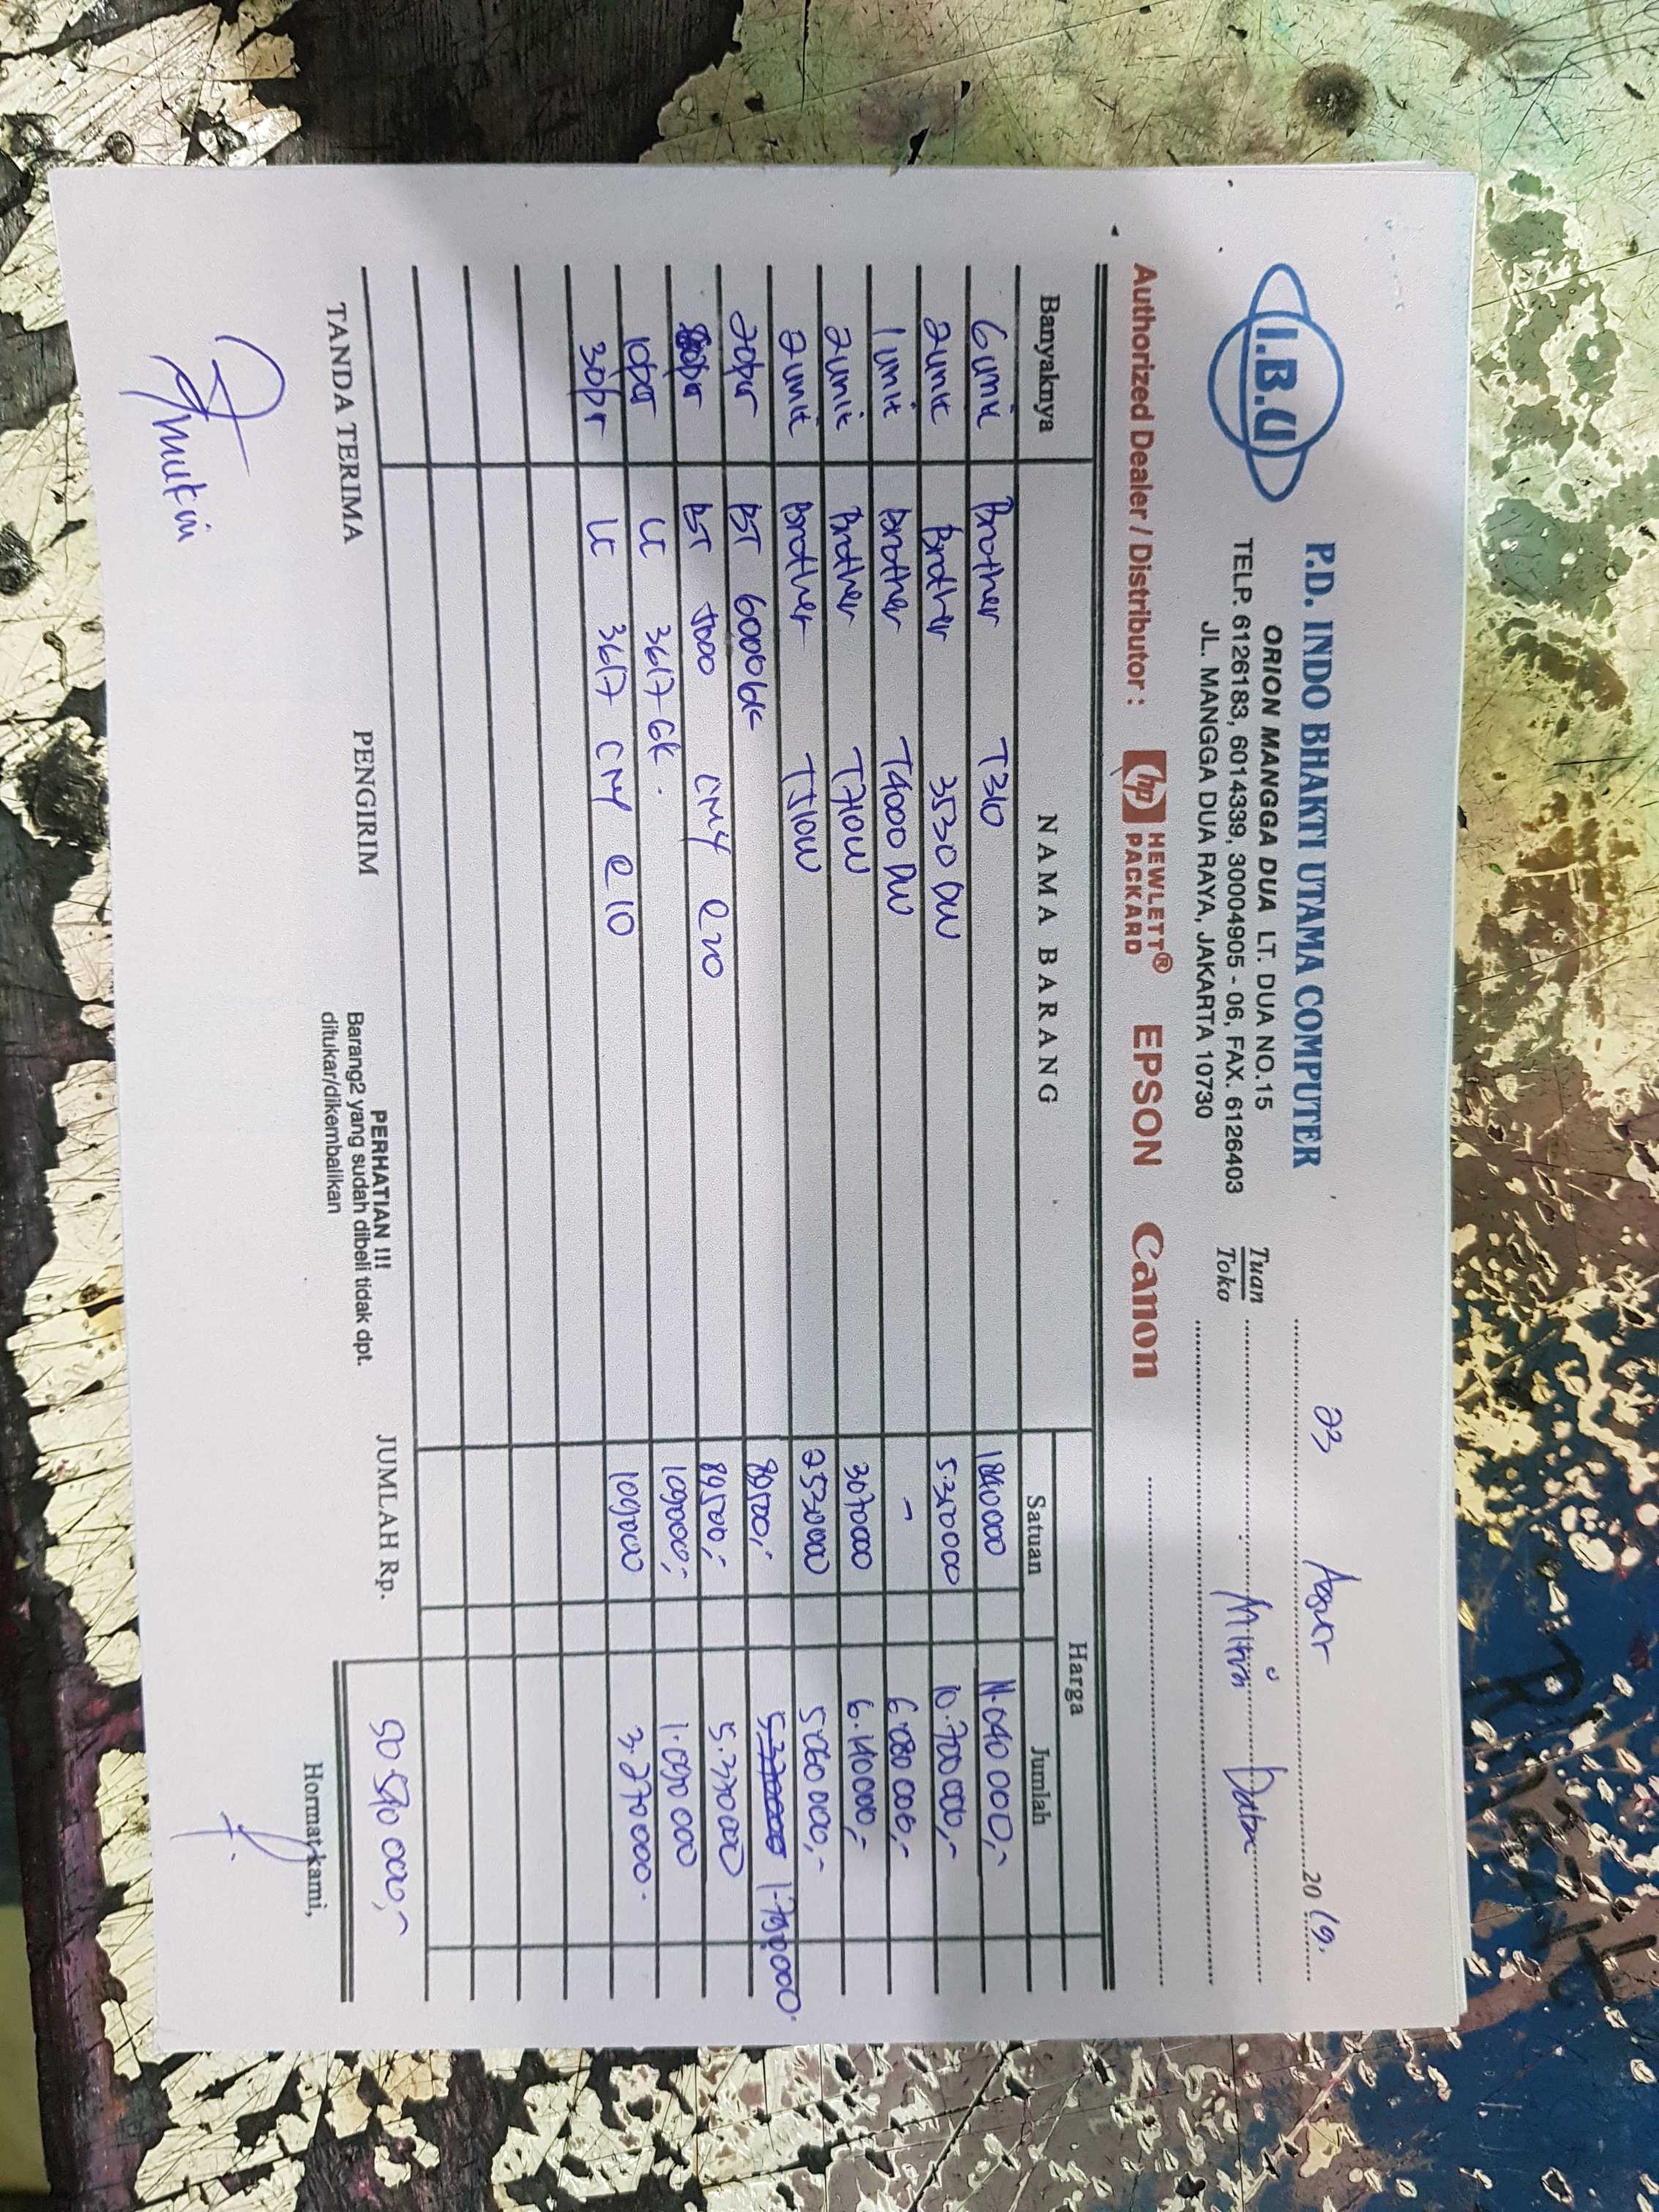 I.B.U
P.D. INDO BHAKTI UTAMA COMPUTER
ORION MANGGA DUA LT. DUA NO.15
TELP. 6126183, 6014339, 30004905 - 06, FAX. 6126403
JL. MANGGA DUA RAYA, JAKARTA 10730
23 2019.
Tuan
Toko
Authorized Dealer / Distributor : hp HEWLETT® PACKARD EPSON Canon
Banyaknya NAMA BARANG Harga
Satuan Jumlah
6 unit Brother T310 1840000 11.040 000,-
2 unit Brother 3530 DW 5.350000 10.700000,-
1 unit Brother T4000 DW - 6.080 000,-
2 unit Brother T710W 3070000 6.140000,-
2 unit Brother T510W 2530000 5.060 000,-
20 pcs BT 6000 bk 89500,- 5.370000 1.790000.
BT 5000 CMY @ 20 89500,- 5.370000
10 pcs LC 3617 bk. 109000,- 1.090 000
30 pcs LC 3617 CMY @ 10 109000 3.270000.
TANDA TERIMA PENGIRIM
PERHATIAN !!!
Barang2 yang sudah dibeli tidak dpt.
ditukar/dikembalikan
JUMLAH Rp. 50 540 000,-
Hormat kami,